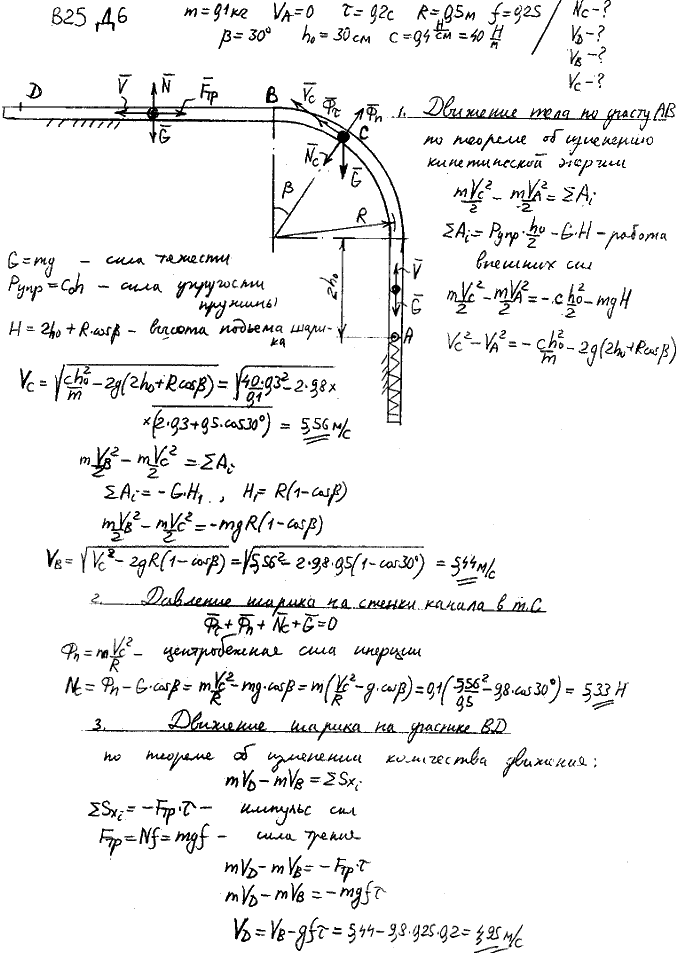 В25 Д6
m=0,1кг V_A=0 τ=0,2с R=0,5м f=0,25
β=30° h₀=30см c=0,4 Н/см=40 Н/м
N_C-?
V_D-?
V_B-?
V_C-?
D V̄ N̄ F̄тр Ḡ B V̄_C Φ̄_τ Φ̄_n C N̄_C Ḡ β R 2h₀ V̄ Ḡ A
1. Движение тела по участу AB
по теореме об изменению
кинетической энергии
mV_C²/2 - mV_A²/2 = ΣA_i
ΣA_i = P_упр·h₀/2 - G·H - работа
внешних сил
mV_C²/2 - mV_A²/2 = -c h₀²/2 - mgH
V_C² - V_A² = - ch₀²/m - 2g(2h₀+Rcosβ)
G=mg - сила тяжести
P_упр=Coh - сила упругости
пружины
H=2h₀+R·cosβ - высота подъема шари-
ка
V_C = √(ch₀²/m - 2g(2h₀+Rcosβ)) = √(40·0,3²/0,1 - 2·9,8×
×(2·0,3+0,5·cos30°)) = 5,56 м/с
mV_B²/2 - mV_C²/2 = ΣA_i
ΣA_i = -G·H₁ , H₁= R(1-cosβ)
mV_B²/2 - mV_C²/2 = -mgR(1-cosβ)
V_B = √(V_C² - 2gR(1-cosβ)) = √(5,56² - 2·9,8·0,5(1-cos30°)) = 5,44 м/с
2. Давление шарика на стенки канала в т.С
Φ̄_τ + Φ̄_n + N̄_C + Ḡ = 0
Φ_n = m V_C²/R - центробежная сила инерции
N_C = Φ_n - G·cosβ = mV_C²/R - mg·cosβ = m(V_C²/R - g·cosβ) = 0,1(5,56²/0,5 - 9,8·cos30°) = 5,33 Н
3. Движение шарика на участке BD
по теореме об изменении количества движения:
mV_D - mV_B = ΣS_xi
ΣS_xi = -Fтр·τ - импульс сил
Fтр = Nf = mgf - сила трения
mV_D - mV_B = -Fтр·τ
mV_D - mV_B = -mgfτ
V_D = V_B - gfτ = 5,44 - 9,8·0,25·0,2 = 4,95 м/с